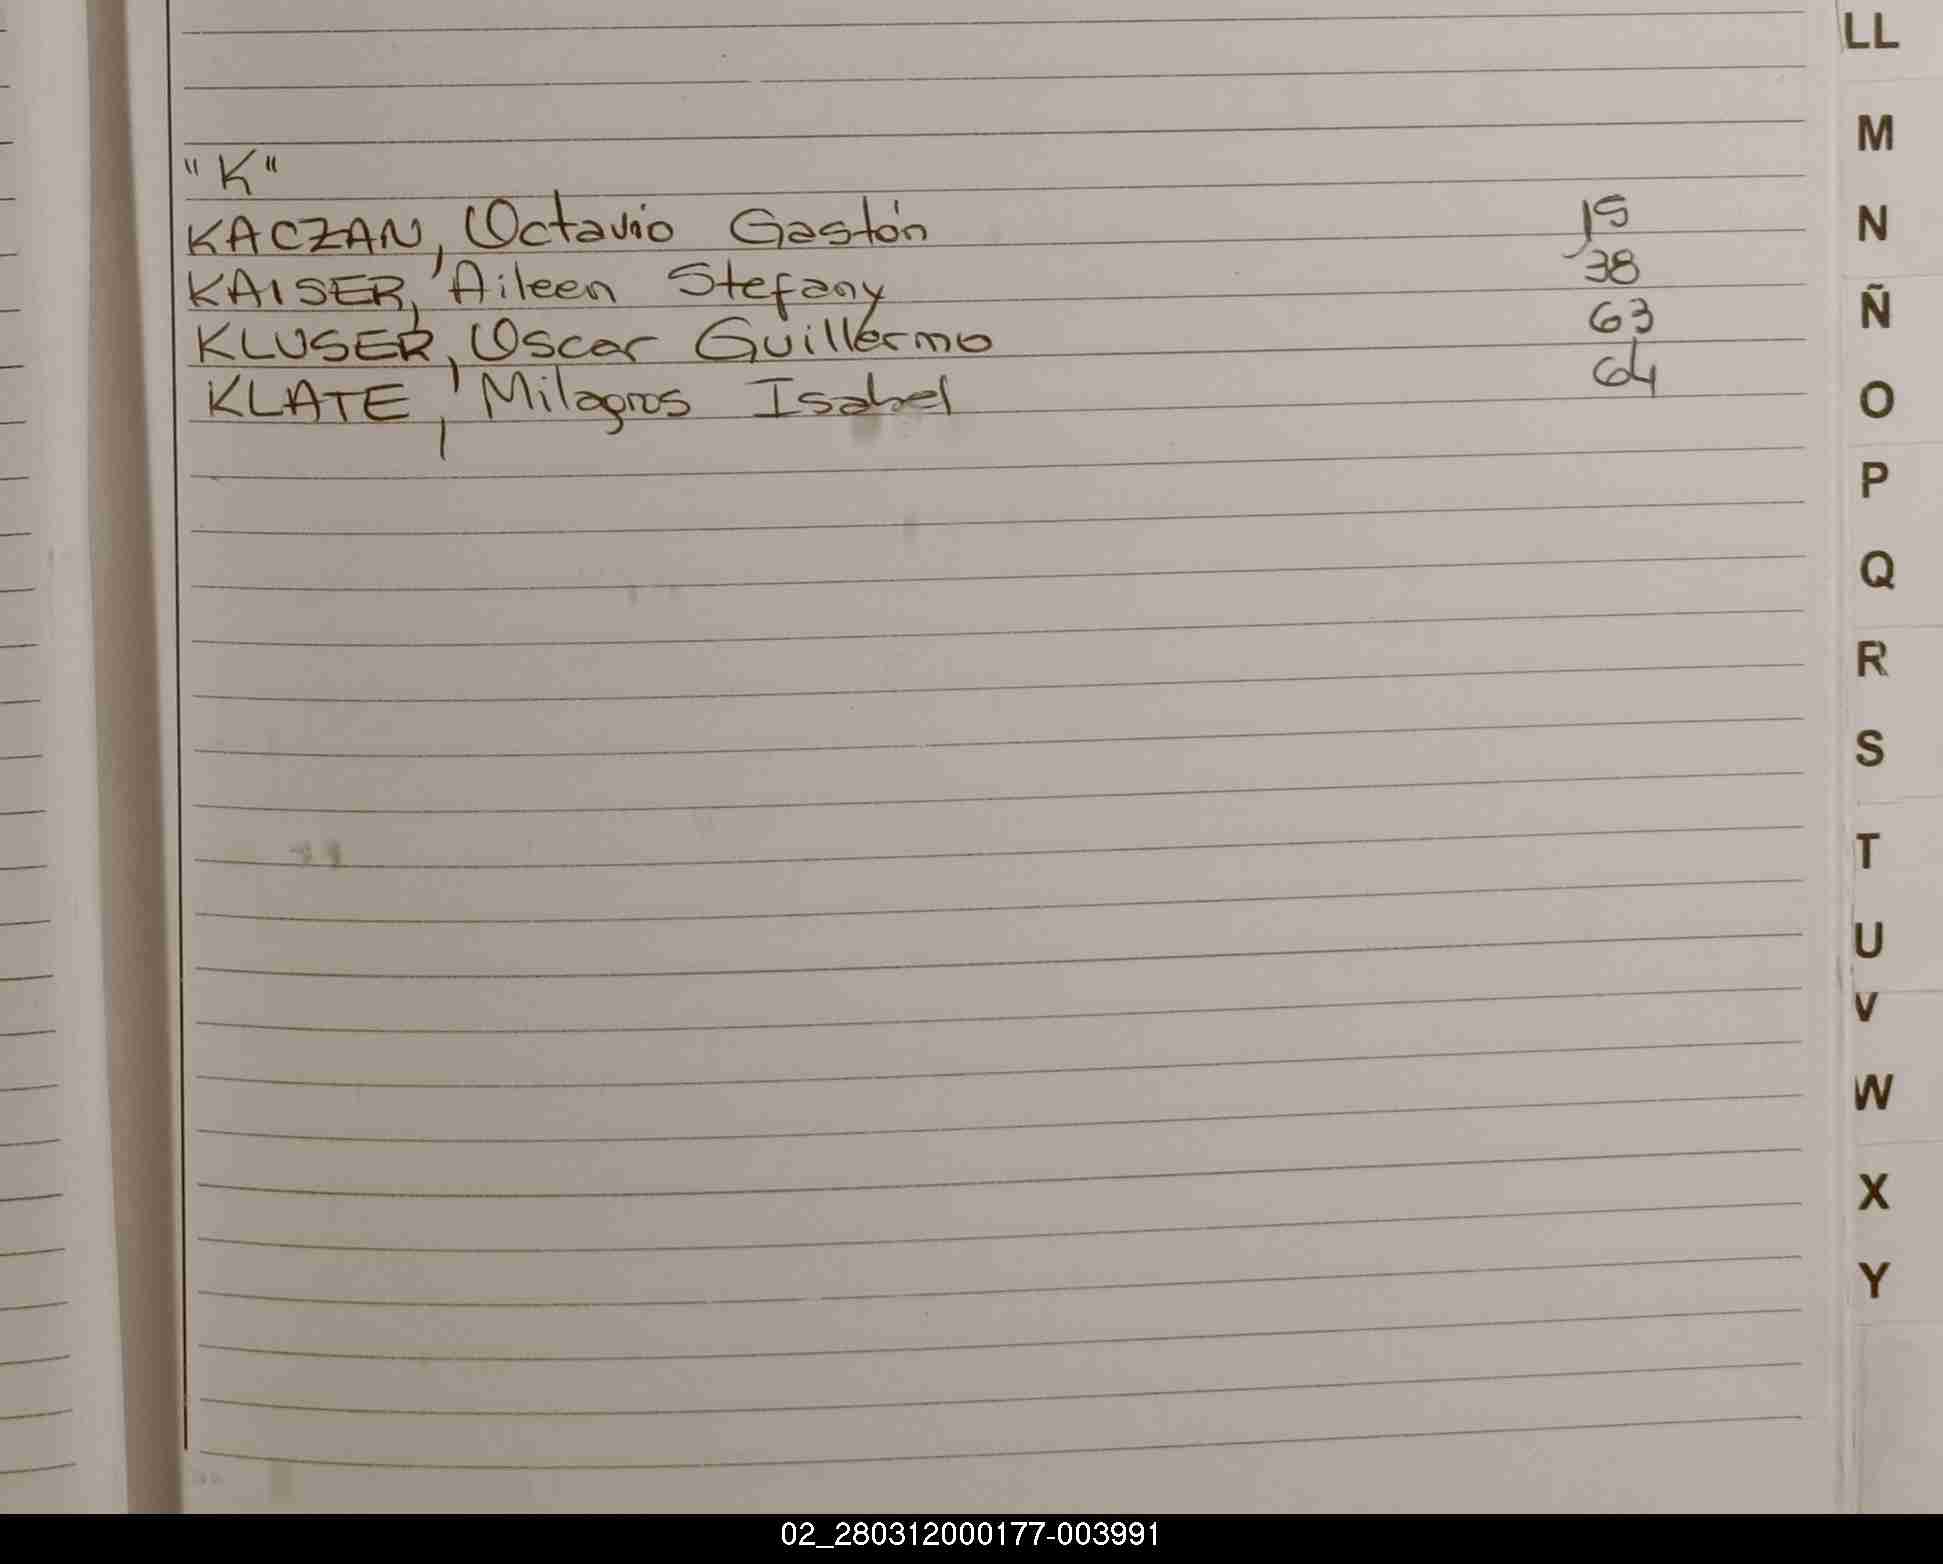 "K"
KACZAN, Octavio Gastón 15
KAISER, Aileen Stefany 38
KLUSER, Oscar Guillermo 63
KLATE, Milagros Isabel 64
LL
M
N
Ñ
O
P
Q
R
S
T
U
V
W
X
Y
02_280312000177-003991